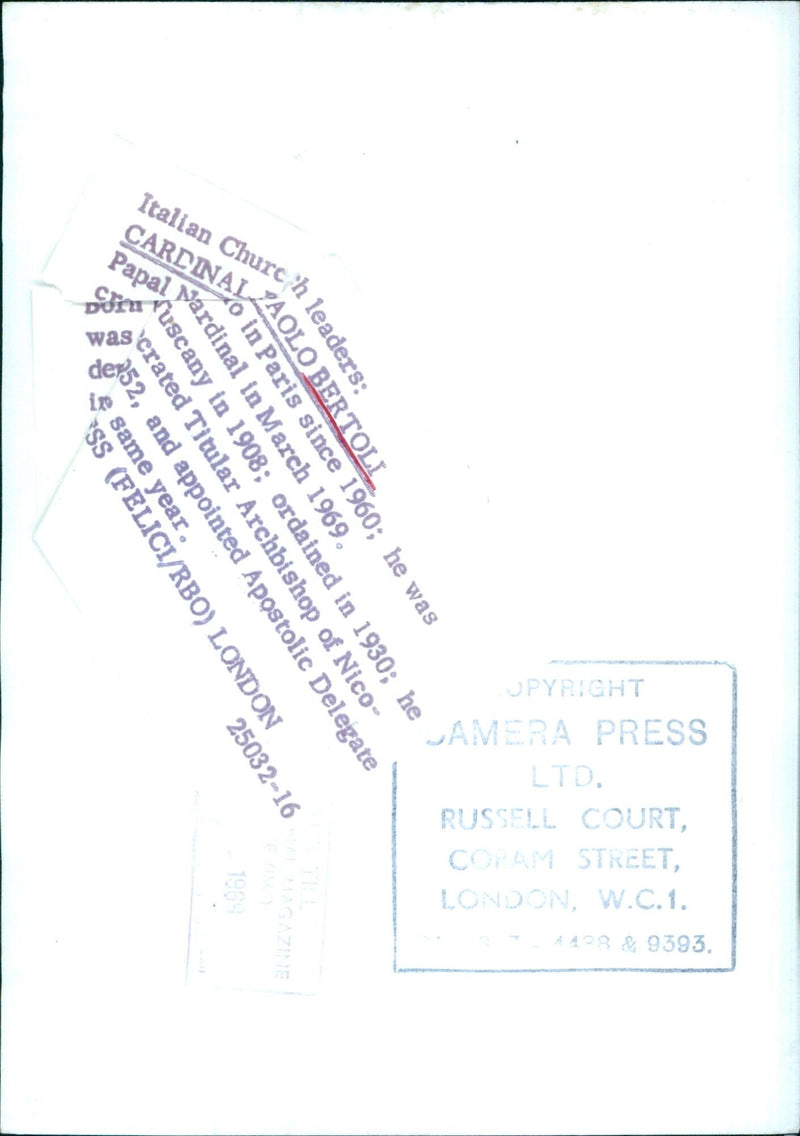 Italian Church leaders:
CARDINAL PAOLO BERTOLI
Papal N o in Paris since 1960; he was
cr ardinal in March 1969.
Born Tuscany in 1908; ordained in 1930; he
was crated Titular Archbishop of Nico-
de 952, and appointed Apostolic Delegate
in same year.
SS (FELICI/RBO) LONDON
25032-16
OPYRIGHT
CAMERA PRESS
LTD.
RUSSELL COURT,
CORAM STREET,
LONDON, W.C.1.
& 9393.
MAGAZINE
1969